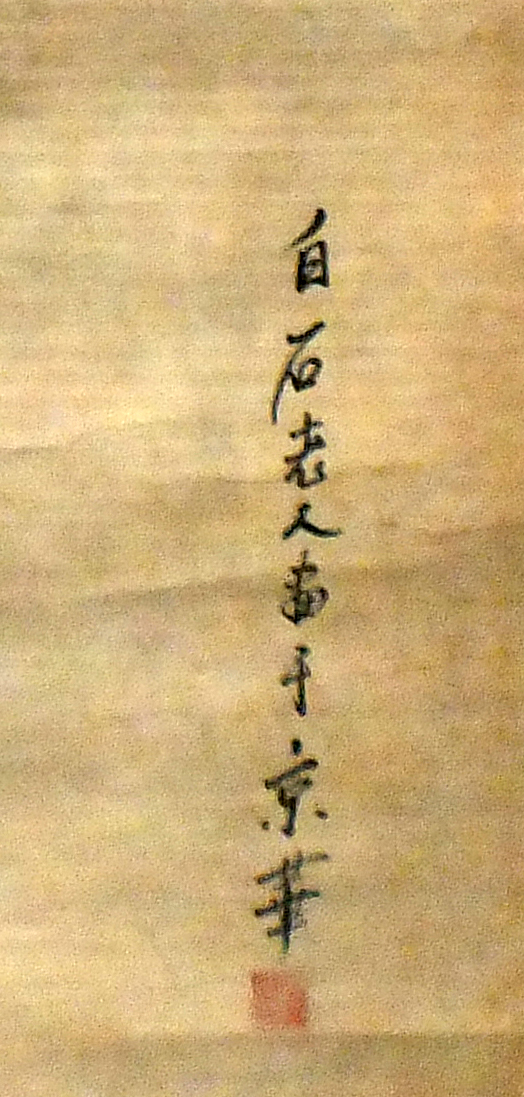 白石老人畫于京華